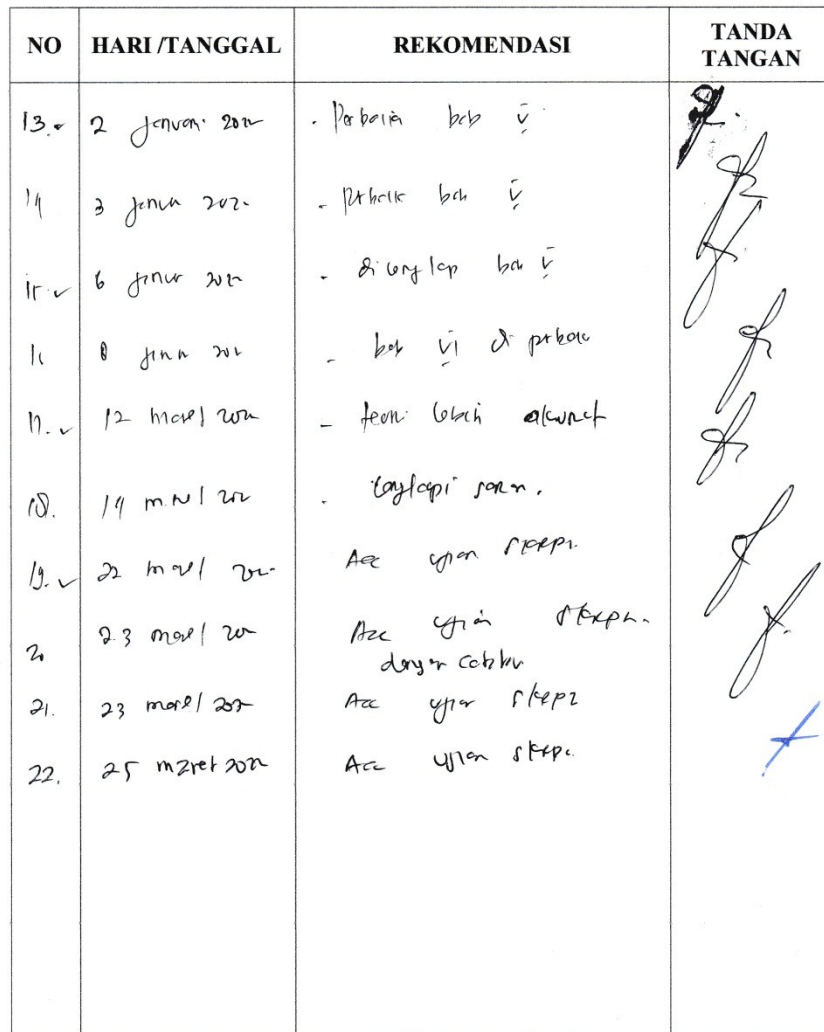 NO HARI /TANGGAL REKOMENDASI TANDA TANGAN
13. 2 Januari 2022 - Perbaiki bab V
14 3 Januari 2022 - Perbaiki bab V
15 6 Januari 2022 - di lengkapi bab V
16 8 Januari 2022 - bab VI di perbaiki
17. 12 Maret 2022 - teori lebih akurat
18. 14 Maret 2022 - lengkapi saran.
19. 22 Maret 2022 Acc ujian skripsi.
20 23 Maret 2022 Acc ujian skripsi.
dengan
21. 23 Maret 2022 Acc ujian skripsi
22. 25 Maret 2022 Acc ujian skripsi.